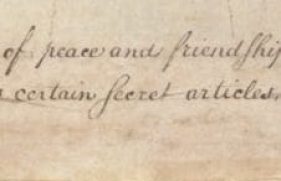 of peace and friendship
certain secret articles,